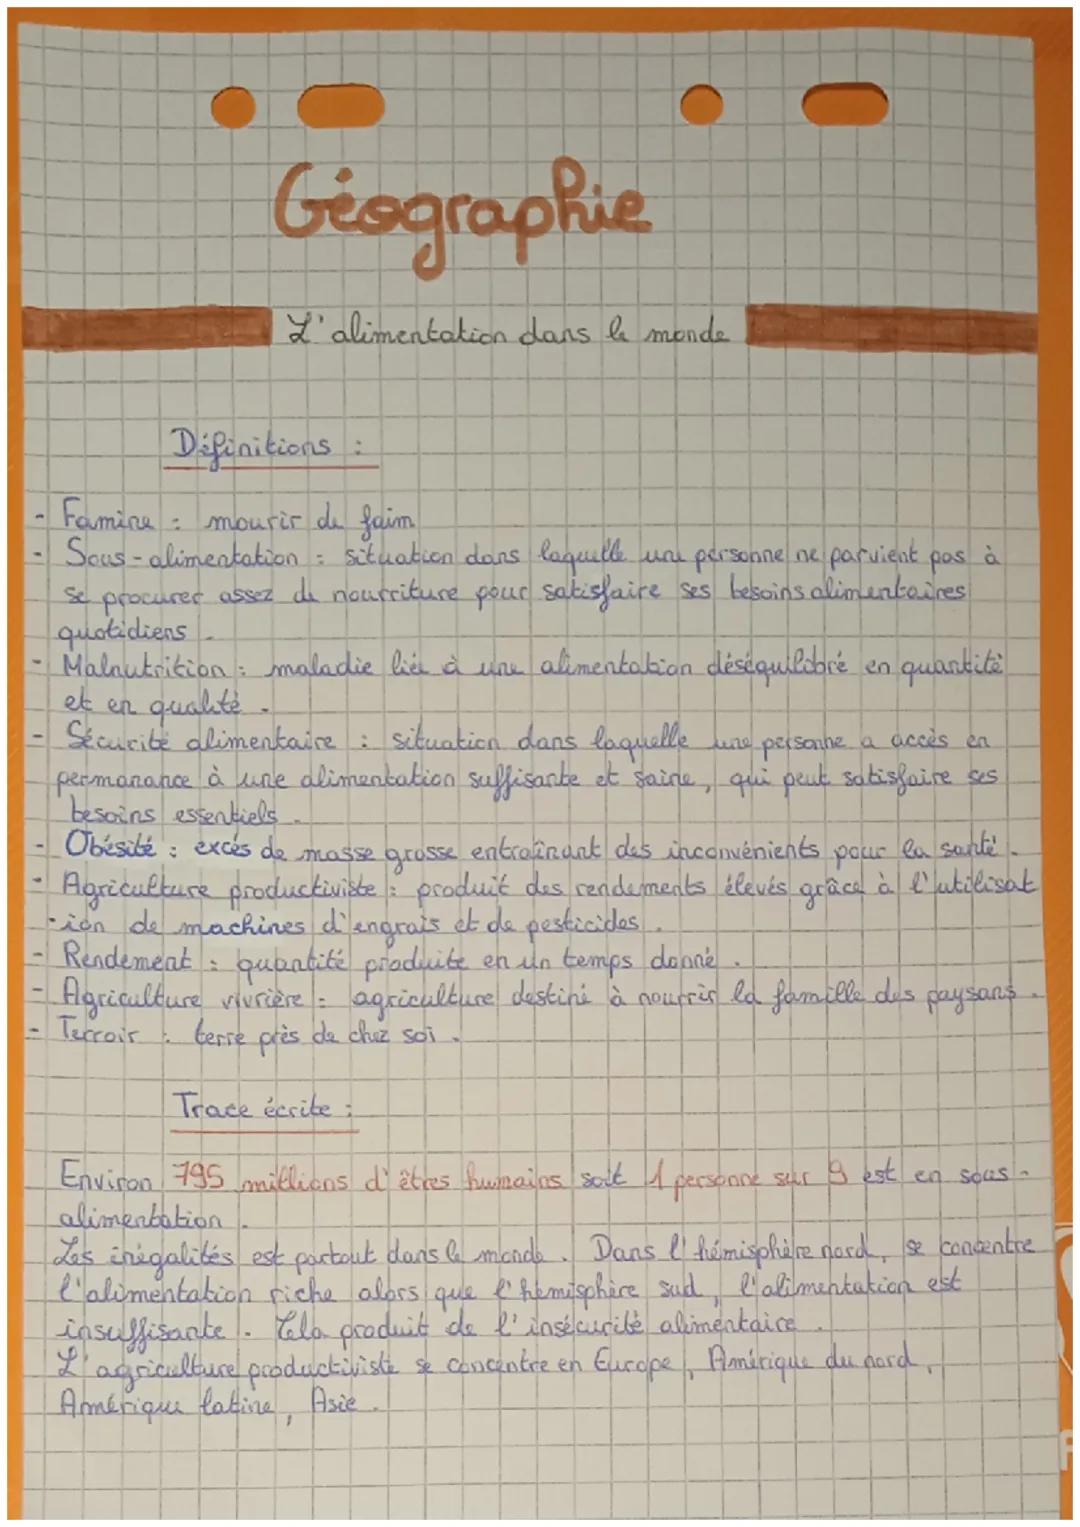 Géographie
L'alimentation dans le monde
Définitions :
- Famine : mourir de faim
- Sous-alimentation : situation dans laquelle une personne ne parvient pas à
se procurer assez de nourriture pour satisfaire ses besoins alimentaires
quotidiens.
- Malnutrition : maladie liée à une alimentation déséquilibré en quantité
et en qualité.
- Sécurité alimentaire : situation dans laquelle une personne a accès en
permanance à une alimentation suffisante et saine, qui peut satisfaire ses
besoins essentiels.
- Obésité : excés de masse grasse entraînant des inconvénients pour la santé.
- Agriculture productiviste : produit des rendements élevés grâce à l'utilisat
-ion de machines d'engrais et de pesticides.
- Rendement : quantité produite en un temps donné.
- Agriculture vivrière : agriculture destiné à nourrir la famille des paysans.
- Terroir : terre près de chez soi.
Trace écrite :
Environ 795 millions d'êtres humains soit 1 personne sur 9 est en sous-
alimentation.
Les inégalités est partout dans le monde. Dans l'hémisphère nord, se concentre
l'alimentation riche alors que l'hémisphère sud, l'alimentation est
insuffisante. Cela produit de l'insécurité alimentaire.
L'agriculture productiviste se concentre en Europe, Amérique du nord,
Amérique latine, Asie.